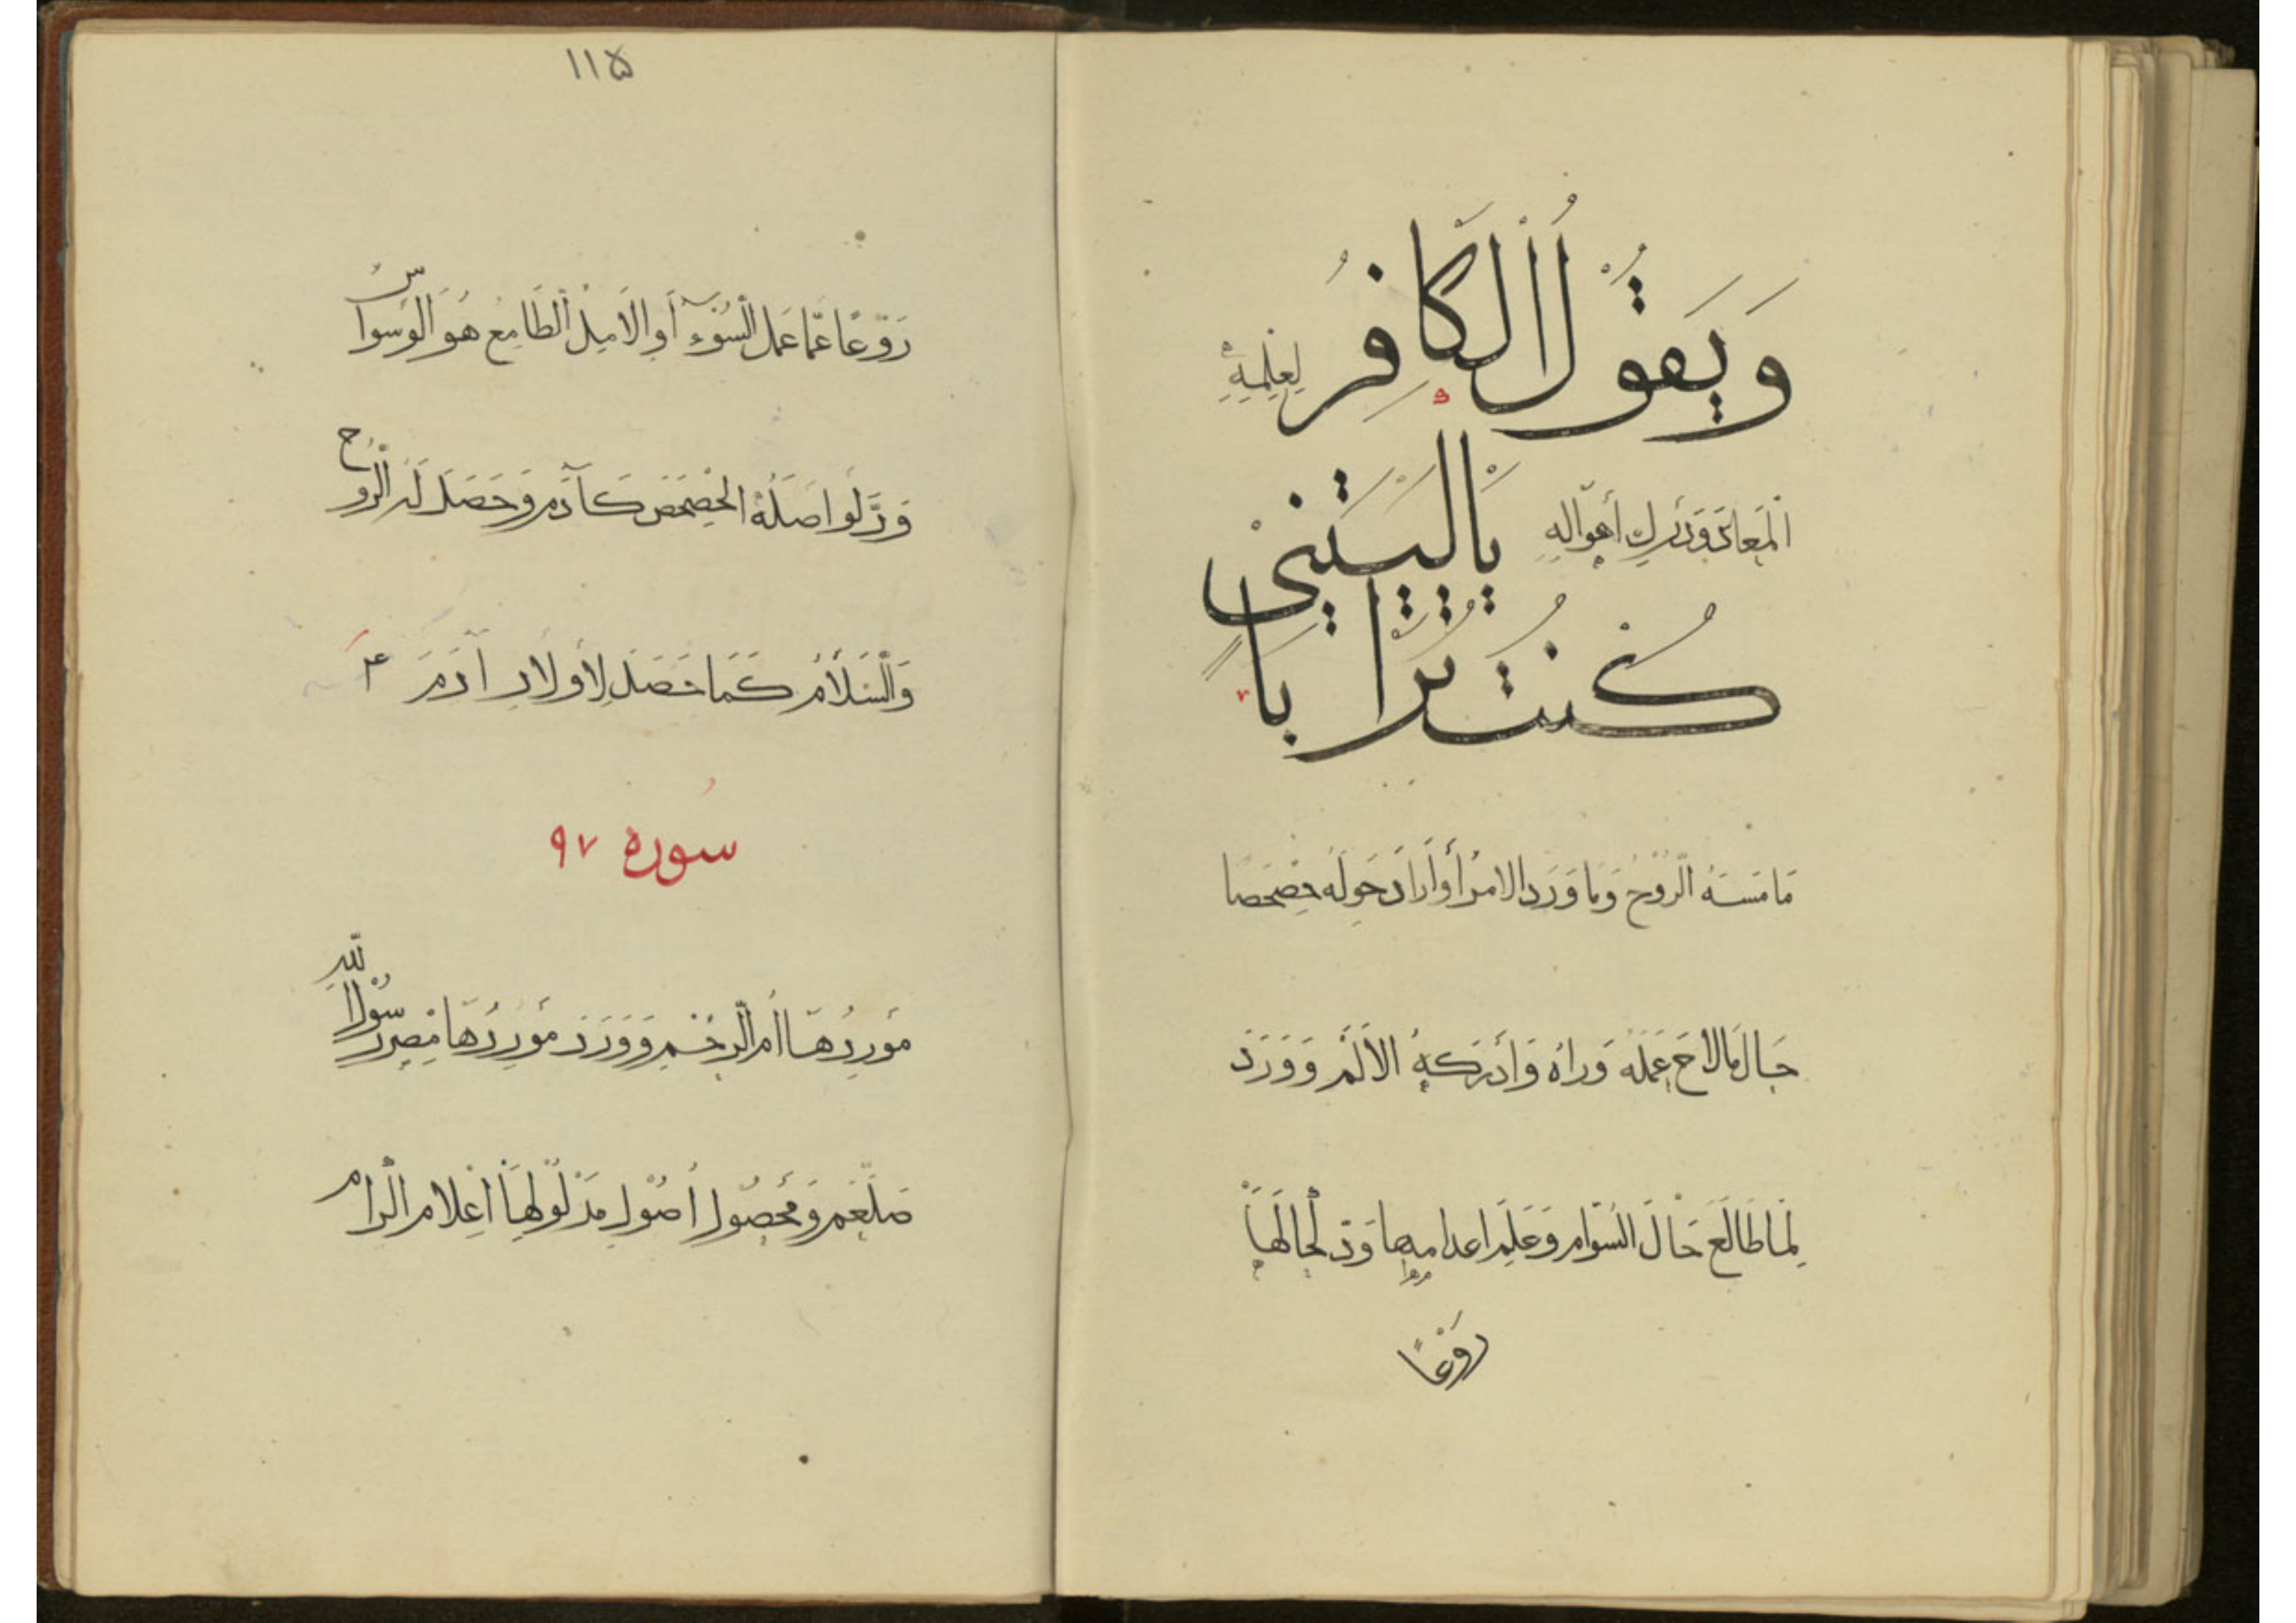 وَيَقُولُ الْكَافِرُ لِعِلْمِهِ
الْمَعَادَ وَدَرْكِ أَهْوَالِهِ يَالَيْتَنِي
كُنْتُ تُرَابًا
مَا مَسَّهُ الرُّوحُ وَمَا وَرَدَ الامْرُ أَوْ أَرَادَ حِوَلَهُ حِصْحِصًا
حَالَ مَا لَاحَ عَمَلُهُ وَرَاهُ وَأَدْرَكَهُ الْأَلَمُ وَوَرَدَ
لَمَّا طَالَعَ حَالَ السَّوَامِ وَعَلِمَ اعدامها وَدَّ لِحَالِهَا
رَوْعًا
١١٥
رَوْعًا عَمَّا عَمَلِ السُّوءِ أَوِ الْاَمِلُ الطَّامِعُ هُوَ الْوَسْوَاسُ
وَدَّ لَوْ اصَلُهُ الْحِصْحِصُ كَآدَمَ وَحَصَلَ لَهُ الرَّوْحُ
وَالسَّلَامُ كَمَا حَصَلَ لِأَوْلَادِ آدَمَ ع م
سوره ٩٧
مَوْرِدُهَا أُمُّ الرُّحْمِ وَوَرَدَ مَوْرِدُهَا مِصْرُ رَسُوْلِ اللّٰهِ
صَلْعَمْ وَمَحْصُولُ أُصُوْلِ مَدْلُوْلِهَا اعْلَامِ الْمَرَامِ